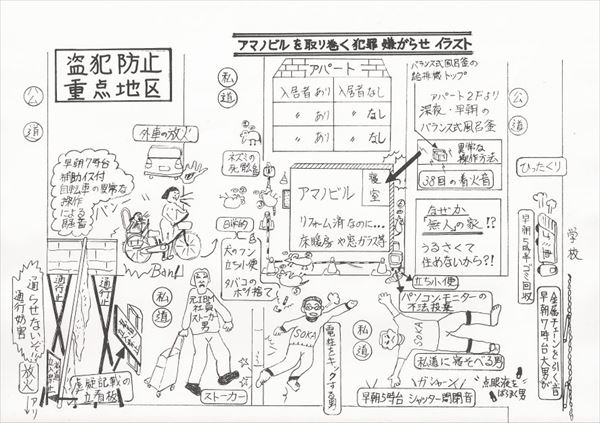 アマノビルを取り巻く犯罪嫌がらせイラスト
盗犯防止
重点地区
公
道
私
道
アパート
入居者あり
入居者なし
〃 あり
〃 なし
〃 あり
〃 なし
バランス式風呂釜の
給排気トップ
アパート2Fより
深夜・早朝の
バランス式風呂釜
異常な
操作方法
38回の着火音
公
道
ひったくり
外車の放火
早朝7時台
補助イス付
自転車の異常な
操作
による
騒音
バン
Ban!
ネズミの
死骸
アマノビル
寝
室
リフォーム済なのに…
床暖房や窓ガラス等
なぜか
"無人"の家!?
うるさくて
住めないから?!
早朝5時半ゴミ回収
学校
金属チェーンを引く音
早朝7時台大男が
犬のフン
立ち小便
タバコの
ポイ捨て
立ち小便
パソコンモニターの
不法投棄
通行止
通行止
通らせないゾ
通行妨害
放火
アリ
虚疑記載の
立看板
私
道
元IBM
社員
ストーカー
男
ストーカー
SOKA
電柱をキックする男
私
道
SOKA
私道に寝そべる男
ガシャーン
早朝5時台 シャッター開閉音
"点眼液を"
ばらまく男